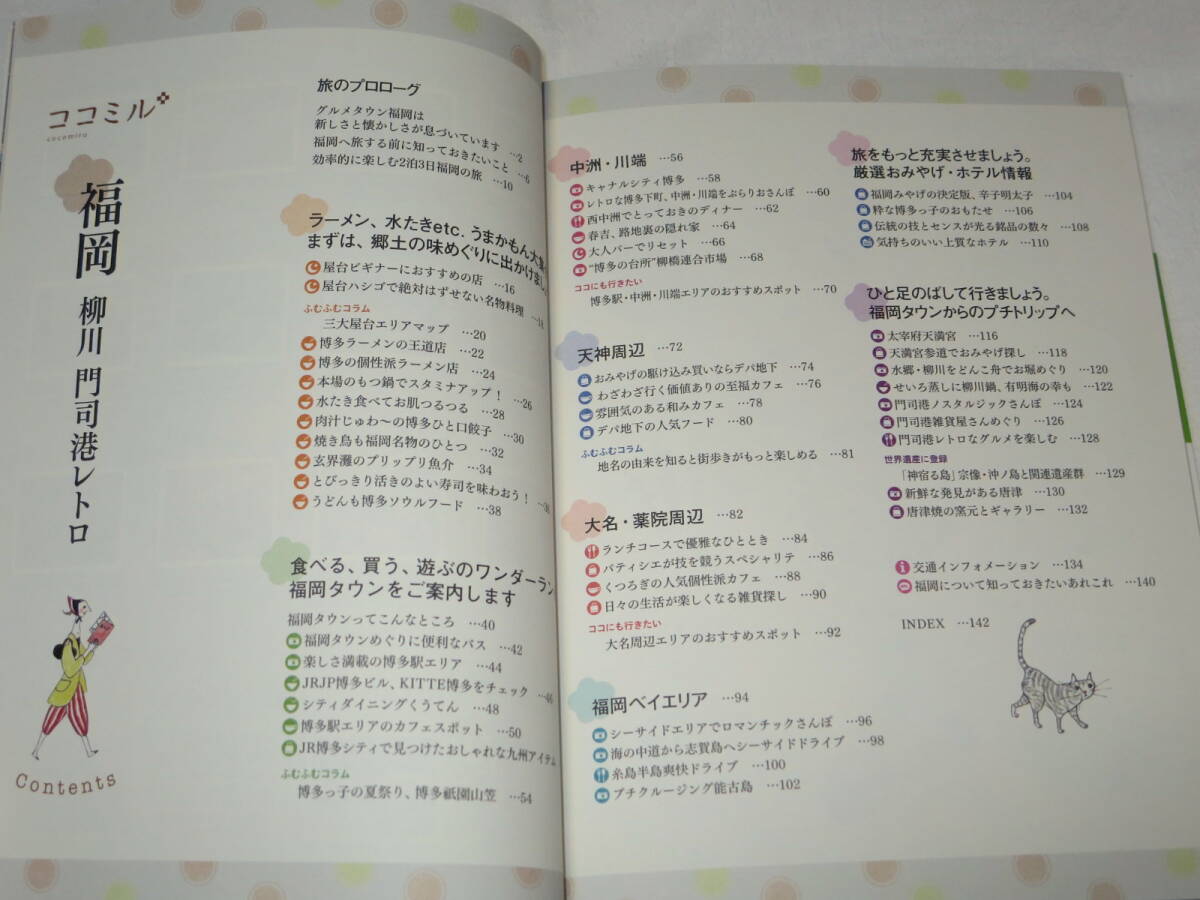 ココミル
cocomiru
福岡 柳川 門司港レトロ
Contents
旅のプロローグ
グルメタウン福岡は
新しさと懐かしさが息づいています …2
福岡へ旅する前に知っておきたいこと …6
効率的に楽しむ2泊3日福岡の旅 …10
ラーメン、水たきetc. うまかもん大集
まずは、郷土の味めぐりに出かけまし
屋台ビギナーにおすすめの店 …16
屋台ハシゴで絶対はずせない名物料理 …18
ふむふむコラム
三大屋台エリアマップ …20
博多ラーメンの王道店 …22
博多の個性派ラーメン店 …24
本場のもつ鍋でスタミナアップ! …26
水たき食べてお肌つるつる …28
肉汁じゅわ〜の博多ひと口餃子 …30
焼き鳥も福岡名物のひとつ …32
玄界灘のプリップリ魚介 …34
とびっきり活きのよい寿司を味わおう! …36
うどんも博多ソウルフード …38
食べる、買う、遊ぶのワンダーラン
福岡タウンをご案内します
福岡タウンってこんなところ …40
福岡タウンめぐりに便利なバス …42
楽しさ満載の博多駅エリア …44
JRJP博多ビル、KITTE博多をチェック …46
シティダイニングくうてん …48
博多駅エリアのカフェスポット …50
JR博多シティで見つけたおしゃれな九州アイテム
ふむふむコラム
博多っ子の夏祭り、博多祇園山笠 …54
中洲・川端 …56
キャナルシティ博多 …58
レトロな博多下町、中洲・川端をぶらりおさんぽ …60
西中洲でとっておきのディナー …62
春吉、路地裏の隠れ家 …64
大人バーでリセット …66
“博多の台所”柳橋連合市場 …68
ココにも行きたい
博多駅・中洲・川端エリアのおすすめスポット …70
天神周辺 …72
おみやげの駆け込み買いならデパ地下 …74
わざわざ行く価値ありの至福カフェ …76
雰囲気のある和みカフェ …78
デパ地下の人気フード …80
ふむふむコラム
地名の由来を知ると街歩きがもっと楽しめる …81
大名・薬院周辺 …82
ランチコースで優雅なひととき …84
パティシエが技を競うスペシャリテ …86
くつろぎの人気個性派カフェ …88
日々の生活が楽しくなる雑貨探し …90
ココにも行きたい
大名周辺エリアのおすすめスポット …92
福岡ベイエリア …94
シーサイドエリアでロマンチックさんぽ …96
海の中道から志賀島へシーサイドドライブ …98
糸島半島爽快ドライブ …100
プチクルージング能古島 …102
旅をもっと充実させましょう。
厳選おみやげ・ホテル情報
福岡みやげの決定版、辛子明太子 …104
粋な博多っ子のおもたせ …106
伝統の技とセンスが光る銘品の数々 …108
気持ちのいい上質なホテル …110
ひと足のばして行きましょう。
福岡タウンからのプチトリップへ
太宰府天満宮 …116
天満宮参道でおみやげ探し …118
水郷・柳川をどんこ舟でお堀めぐり …120
せいろ蒸しに柳川鍋、有明海の幸も …122
門司港ノスタルジックさんぽ …124
門司港雑貨屋さんめぐり …126
門司港レトロなグルメを楽しむ …128
世界遺産に登録
「神宿る島」宗像・沖ノ島と関連遺産群 …129
新鮮な発見がある唐津 …130
唐津焼の窯元とギャラリー …132
交通インフォメーション …134
福岡について知っておきたいあれこれ …140
INDEX …142